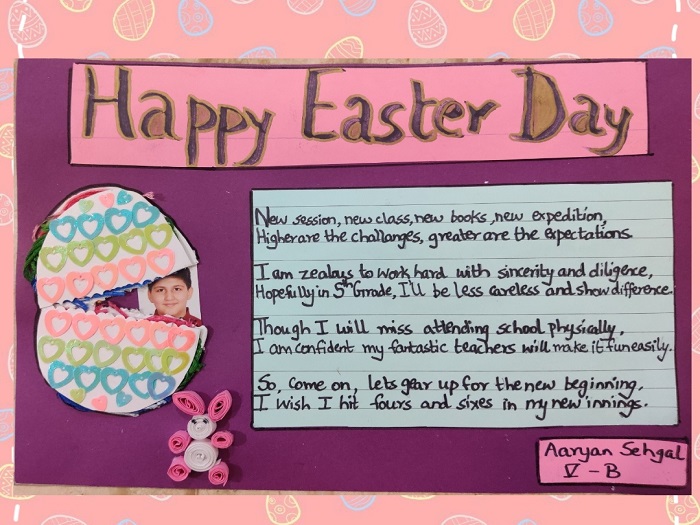 Happy Easter Day
New session, new class, new books, new expedition,
Higher are the challanges, greater are the expectations.
I am zealays to work hard with sincerity and diligence,
Hopefully in 5th Grade, I'll be less careless and show difference.
Though I will miss attending school physically,
I am confident my fantastic teachers will make it fun easily.
So, come on, lets gear up for the new beginning.
I wish I hit fours and sixes in my new innings.
Aaryan Sehgal
V - B